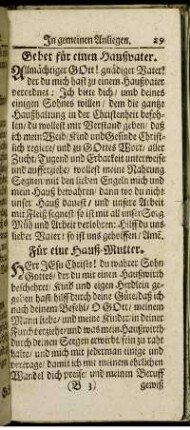 In gemeinen Anliegen. 29
Gebet für einen Haußvater.
Allmächtiger GOtt! gnädiger Vater!
der du mich hast zu einem Haußvater
verordnet: Ich bitte dich/ umb deines
einigen Sohnes willen/ dem die gantze
Haußhaltung in der Christenheit befoh-
len/ du wollest mir Verstand geben/ daß
ich mein Weib/Kind und Gesinde Christ-
lich regiere/ und zu GOttes Wort/ aller
Zucht/Tugend und Erbarkeit unterweise
und aufferziehe/ wollest meine Nahrung
Segnen mit den lieben Engeln mich und
mein Hauß bewahren/ dann wo du nicht
unser Hauß bauest/ und unsere Arbeit
mit Fleiß segnest/ so ist mit all unser Sorg
Müh und Arbeit verlohren: Hilff du uns
lieber Vater: so ist uns geholffen/ Ame.
Für eine Hauß-Mutter.
HErr JEsu Christe! du wahrer Sohn
Gottes/ der du mir einen Haußwirth
bescheheret/ Kind und eigen Herdlein ge-
geben hast/ hilff durch deine Güte/daß ich
nach deinem Befehl/ O GOtt/ meinem
Mann liebe/ und meine Kinder in deiner
Furcht erziehe/und was mein Haußwirth
durch deinen Seegen erwirbt/fein zu rath
halte/ und mich mit jederman einige und
vertrage/ damit ich mit meinem ehrlichen
Wandel dich preise/ und meinen Beruff
(B 3) gewiß